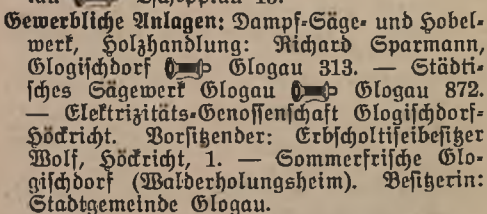 Gewerbliche Anlagen: Dampf-Säge- und Hobel-
werk, Holzhandlung: Richard Sparmann,
Glogischdorf Glogau 313. — Städti-
sches Sägewerk Glogau Glogau 872.
— Elektrizitäts-Genossenschaft Glogischdorf-
Höckricht. Vorsitzender: Erbscholtiseibesitzer
Wolf, Höckricht, 1. — Sommerfrische Glo-
gischdorf (Walderholungsheim). Besitzerin:
Stadtgemeinde Glogau.